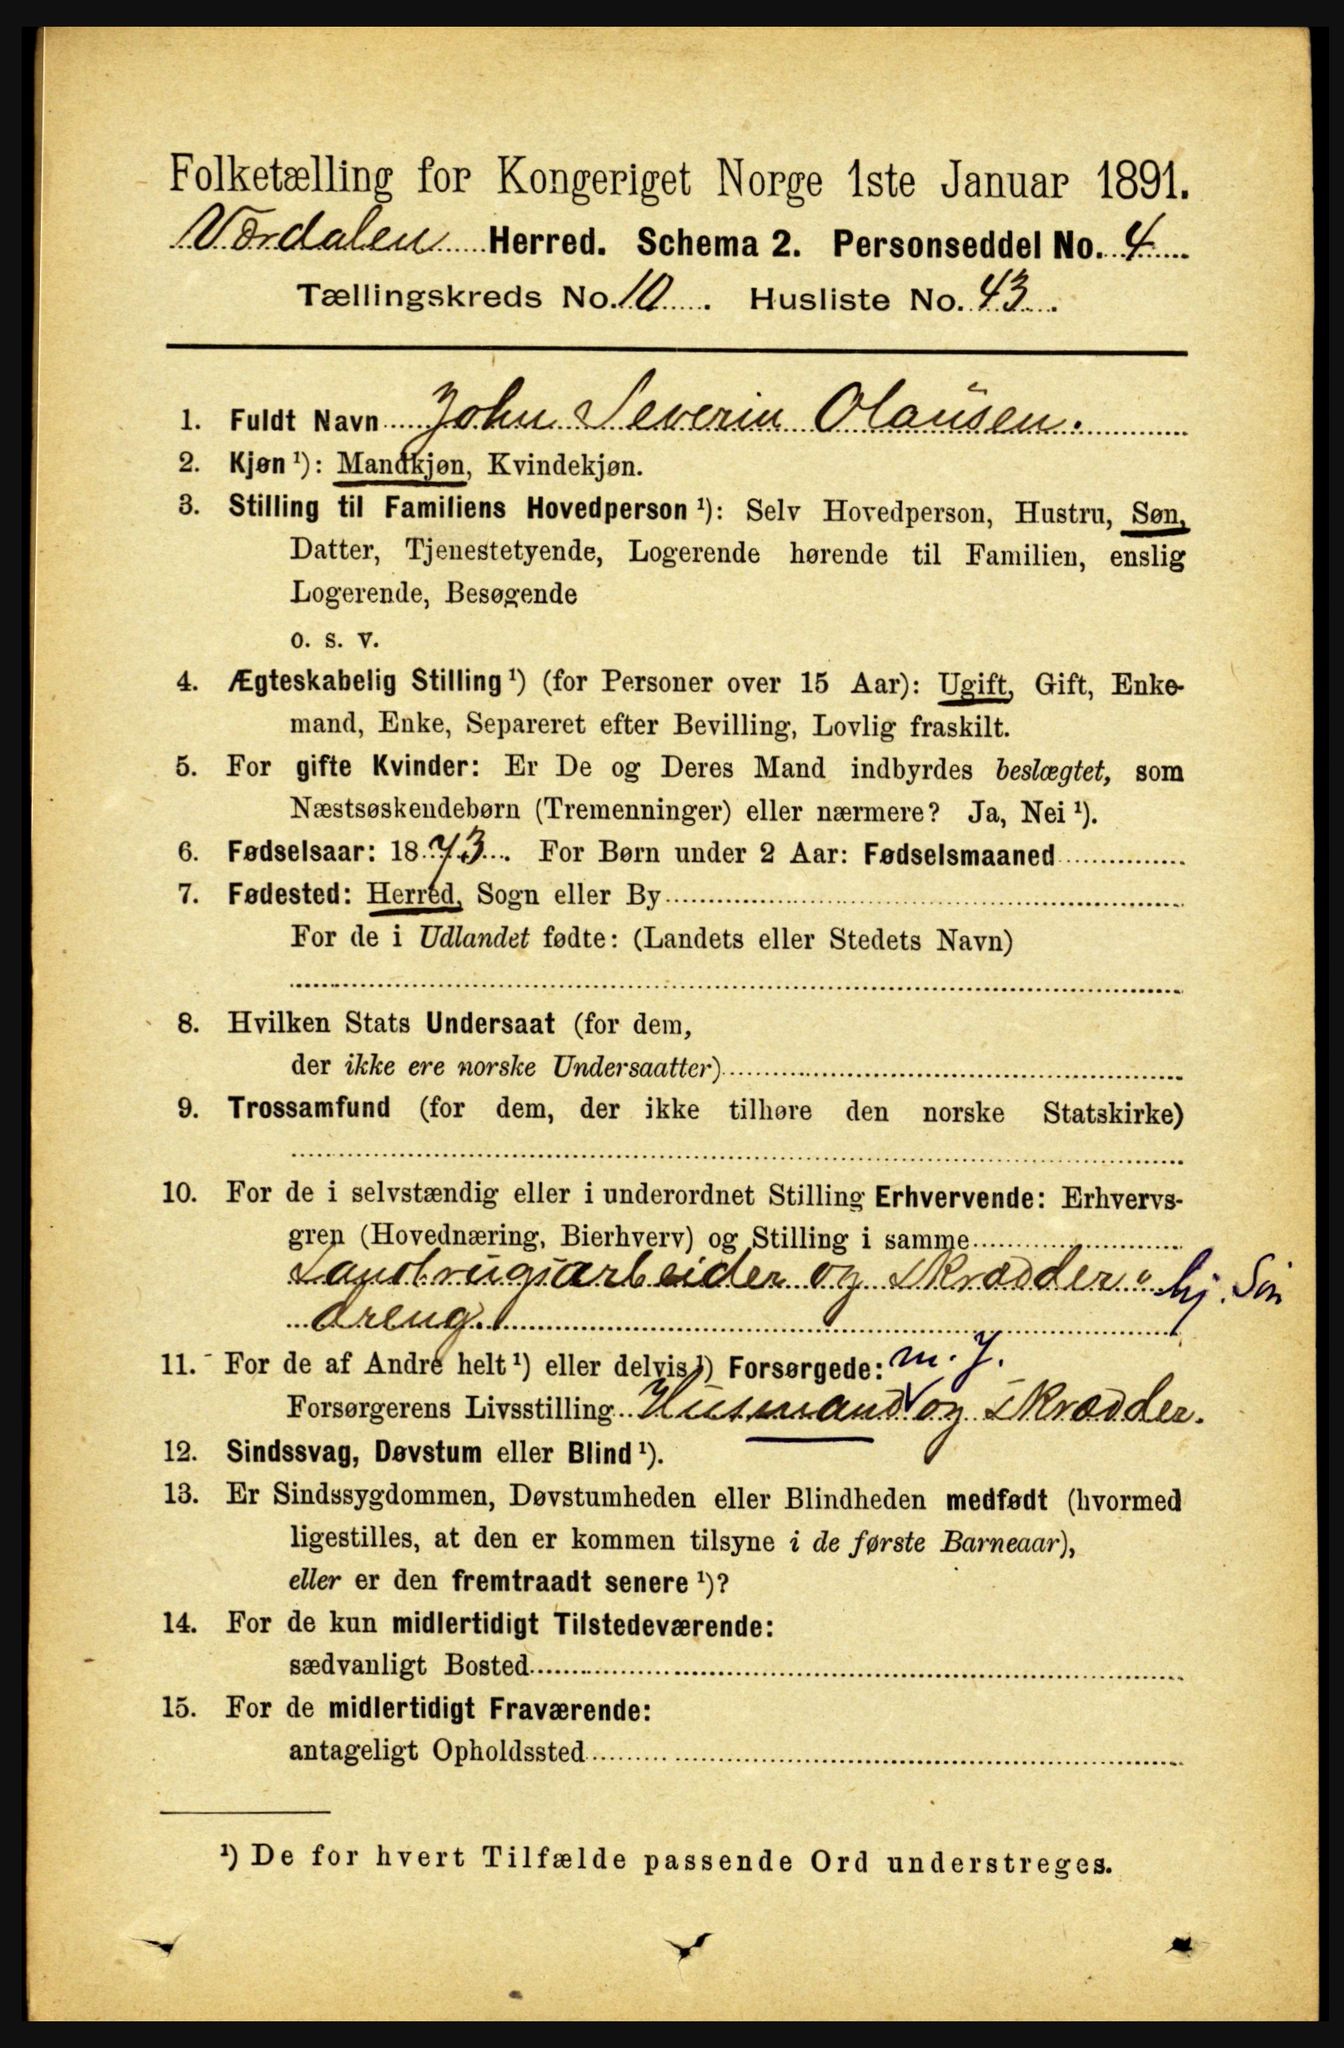 Folketælling for Kongeriget Norge 1ste Januar 1891.
Værdalen Herred. Schema 2. Personseddel No. 4
Tællingskreds No. 10. Husliste No. 43.
1. Fuldt Navn John Severin Olausen.
2. Kjøn ¹): Mandkjøn, Kvindekjøn.
3. Stilling til Familiens Hovedperson ¹): Selv Hovedperson, Hustru, Søn,
Datter, Tjenestetyende, Logerende hørende til Familien, enslig
Logerende, Besøgende
o. s. v.
4. Ægteskabelig Stilling ¹) (for Personer over 15 Aar): Ugift, Gift, Enke-
mand, Enke, Separeret efter Bevilling, Lovlig fraskilt.
5. For gifte Kvinder: Er De og Deres Mand indbyrdes beslægtet, som
Næstsøskendebørn (Tremenninger) eller nærmere? Ja, Nei ¹).
6. Fødselsaar: 1873. For Børn under 2 Aar: Fødselsmaaned
7. Fødested: Herred, Sogn eller By
For de i Udlandet fødte: (Landets eller Stedets Navn)
8. Hvilken Stats Undersaat (for dem,
der ikke ere norske Undersaatter)
9. Trossamfund (for dem, der ikke tilhøre den norske Statskirke)
10. For de i selvstændig eller i underordnet Stilling Erhvervende: Erhvervs-
gren (Hovednæring, Bierhverv) og Stilling i samme
Landbrugsarbeider og Skrædder- hj. Søn
dreng.
11. For de af Andre helt ¹) eller delvis ¹) Forsørgede: m. J.
Forsørgerens Livsstilling Husmand og Skrædder.
12. Sindssvag, Døvstum eller Blind ¹).
13. Er Sindssygdommen, Døvstumheden eller Blindheden medfødt (hvormed
ligestilles, at den er kommen tilsyne i de første Barneaar),
eller er den fremtraadt senere ¹)?
14. For de kun midlertidigt Tilstedeværende:
sædvanligt Bosted
15. For de midlertidigt Fraværende:
antageligt Opholdssted
¹) De for hvert Tilfælde passende Ord understreges.